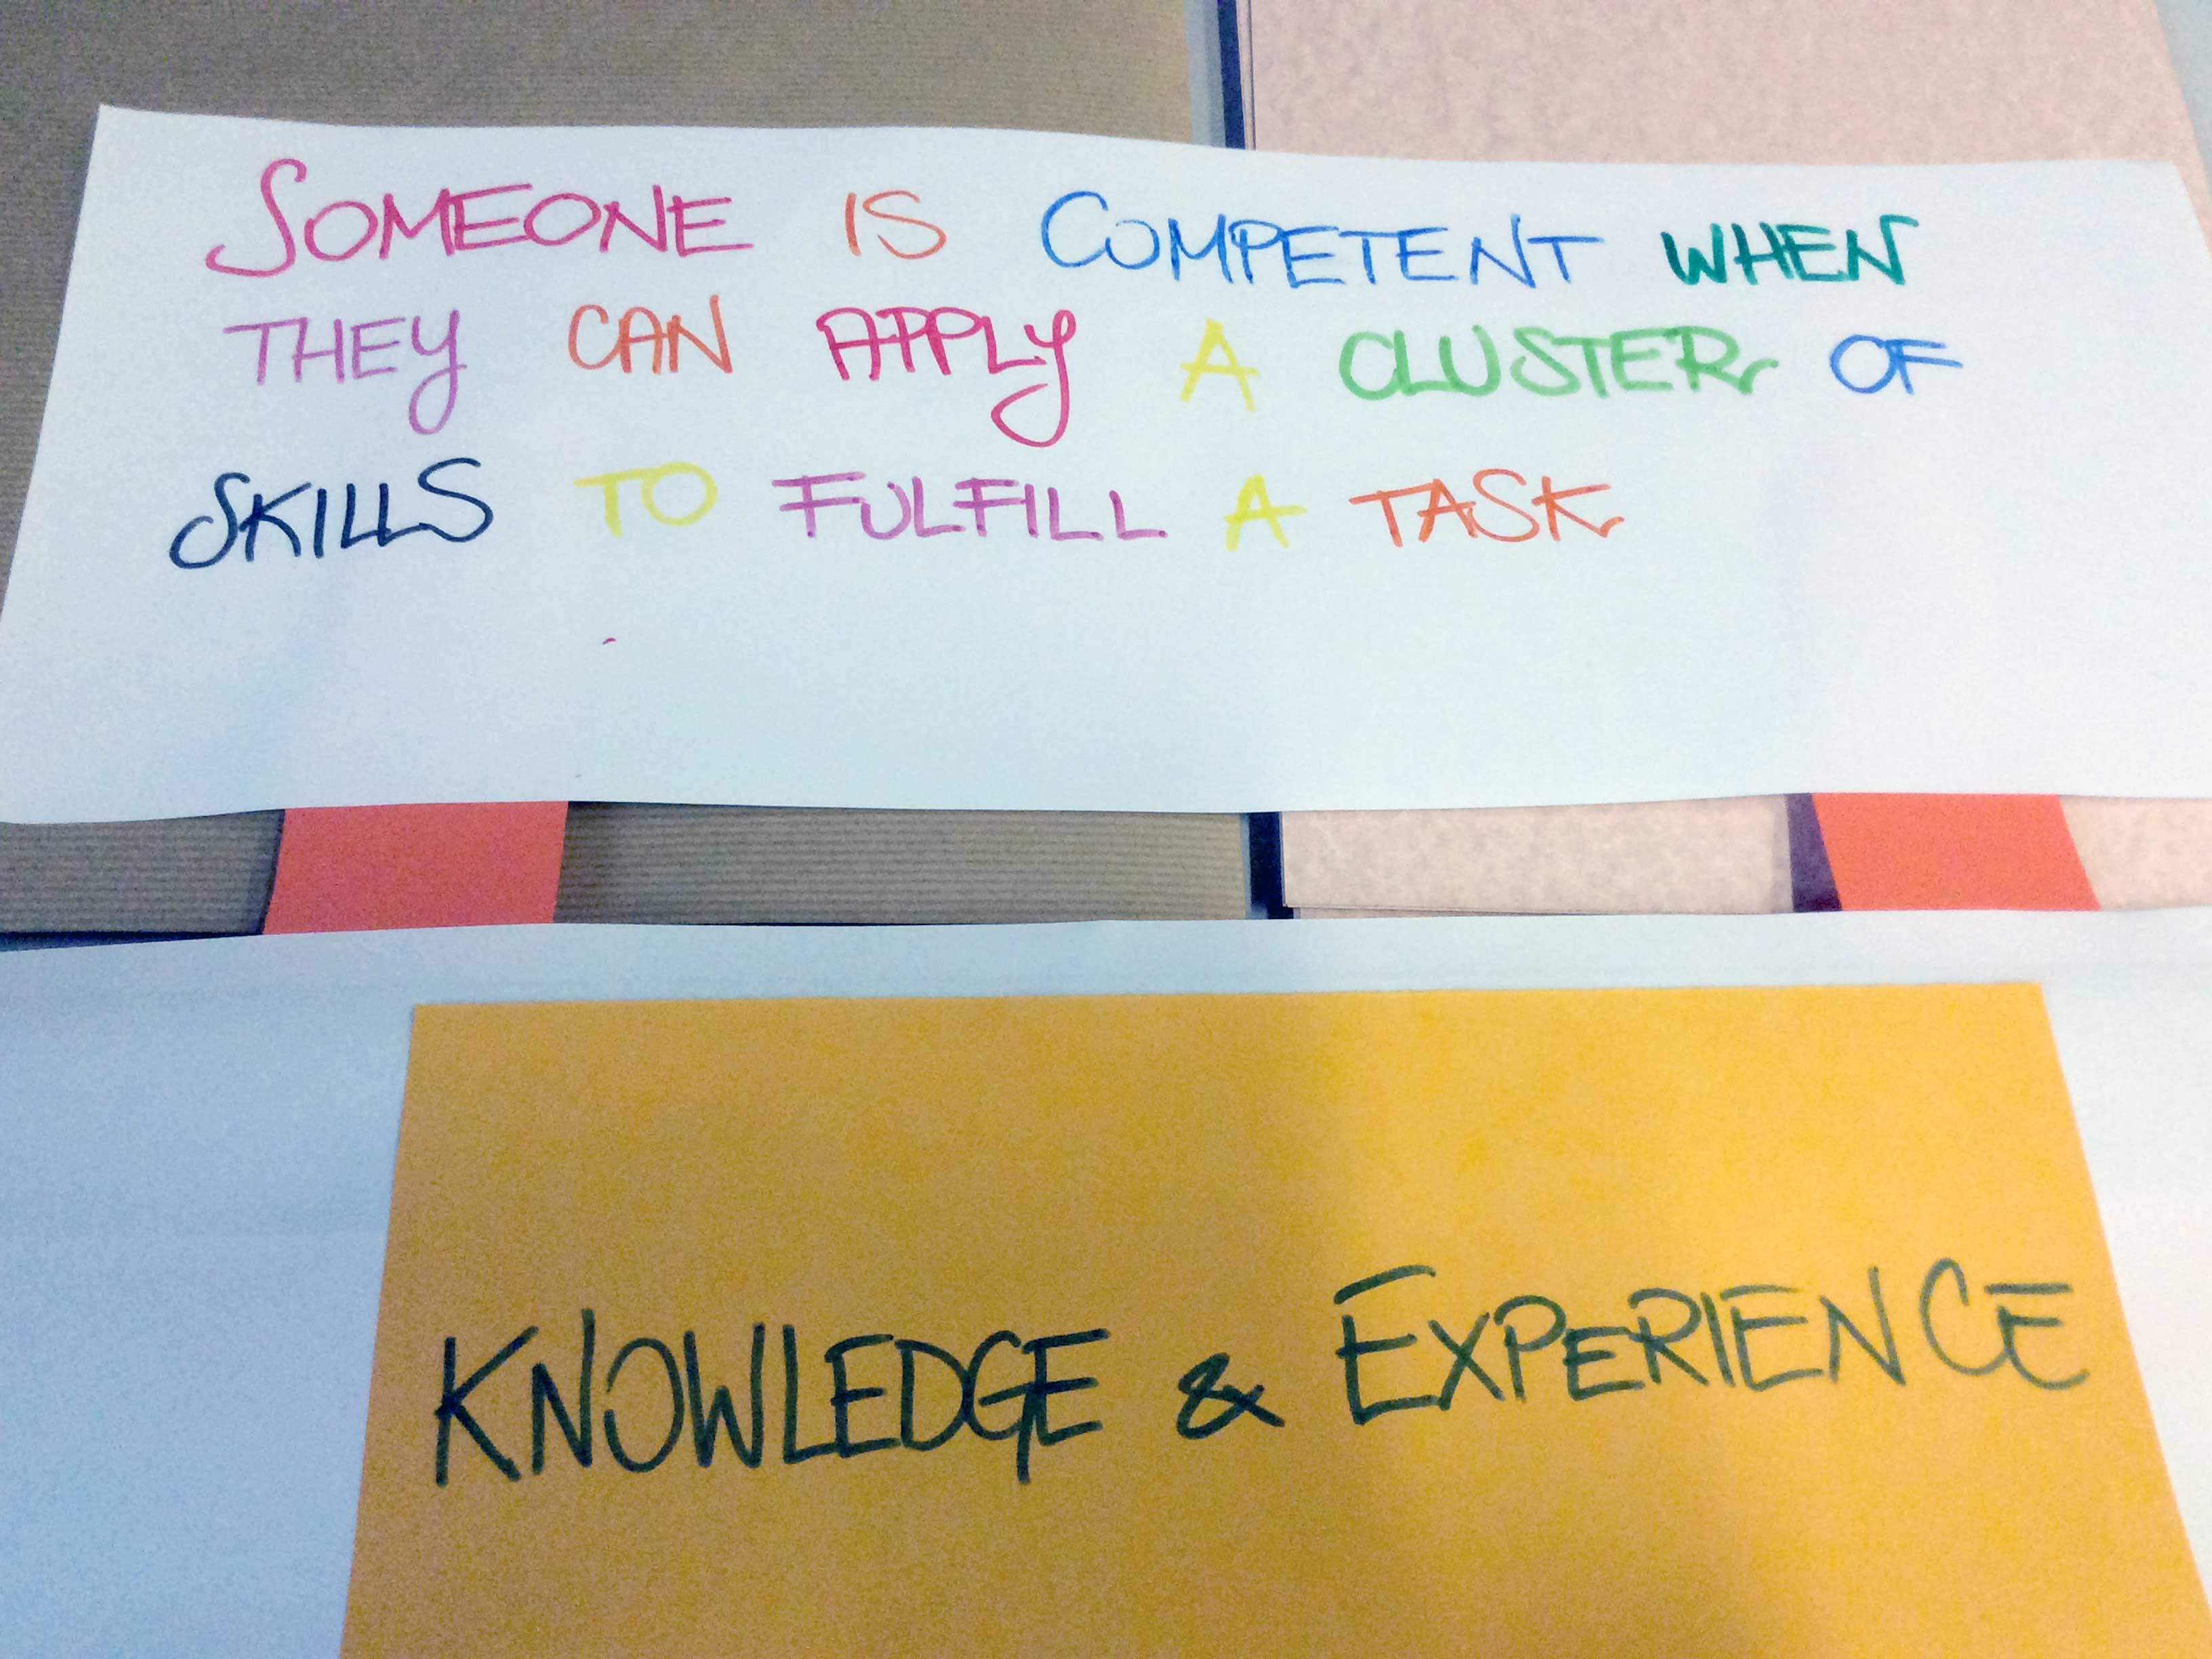 SOMEONE IS COMPETENT WHEN
THEY CAN APPLY A CLUSTER OF
SKILLS TO FULFILL A TASK
KNOWLEDGE & EXPERIENCE